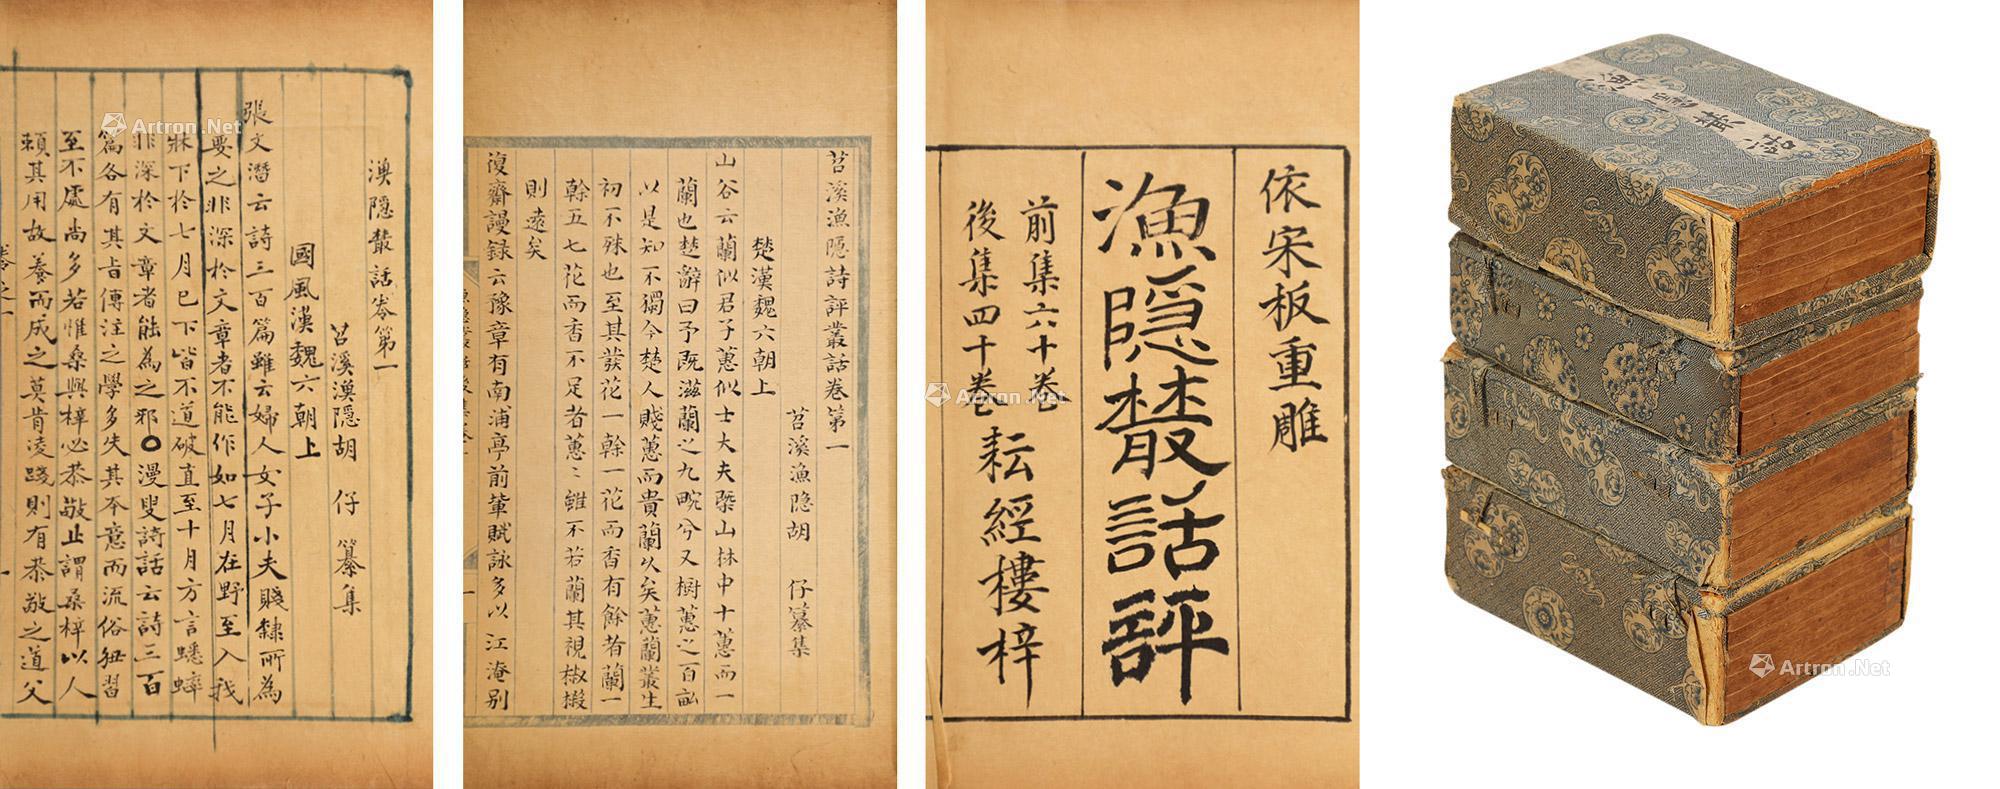 漁隐叢話卷第一
苕溪漁隐胡 仔 纂集
國風漢魏六朝上
張文潛云詩三百篇雖云婦人女子小夫賤隸所為
要之非深於文章者不能作如七月在野至入我
牀下於七月已下皆不道破直至十月方言蟋蟀
非深於文章者能為之邪〇漫叟詩話云詩三百
篇各有其旨傳注之學多失其本意而流俗狃習
至不處尚多若惟桑與梓必恭敬止謂桑梓以人
賴其用故養而成之莫肯淩踐則有恭敬之道父
苕溪漁隐詩評叢話卷第一
苕溪漁隐胡 仔纂集
楚漢魏六朝上
山谷云蘭似君子蕙似士大夫槩山林中十蕙而一
蘭也楚辭曰予既滋蘭之九畹兮又樹蕙之百畝
以是知不獨今楚人賤蕙而貴蘭以矣蕙蘭叢生
初不殊也至其發花一榦一花而香有餘者蘭一
榦五七花而香不足者蕙〻雖不若蘭其視椒樧
則遠矣
復齋謾録云豫章有南浦亭前輩賦詠多以江淹别
依宋板重雕
漁隐叢話評
前集六十卷
後集四十卷
耘經樓梓
Artron.Net
Artron.Net
Artron.Net